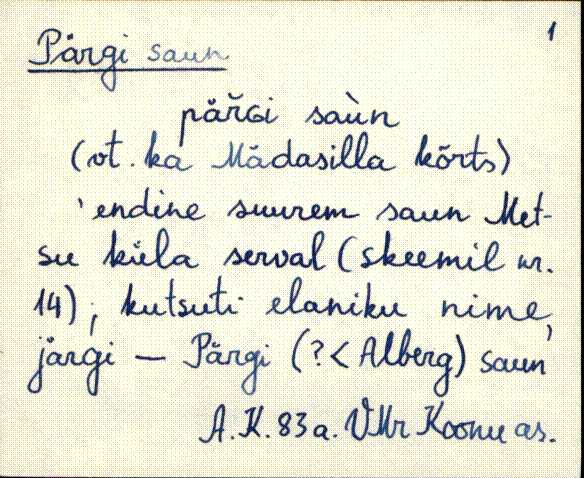 1
Pärgi saun
pär̆Gi saùn
(vt. ka Mädasilla kõrts)
'endine suurem saun Met-
su küla serval (skeemil nr.
14); kutsuti elaniku nime
järgi — Pärgi (? < Alberg) saun'
A.K. 83a. VMr Koonu as.